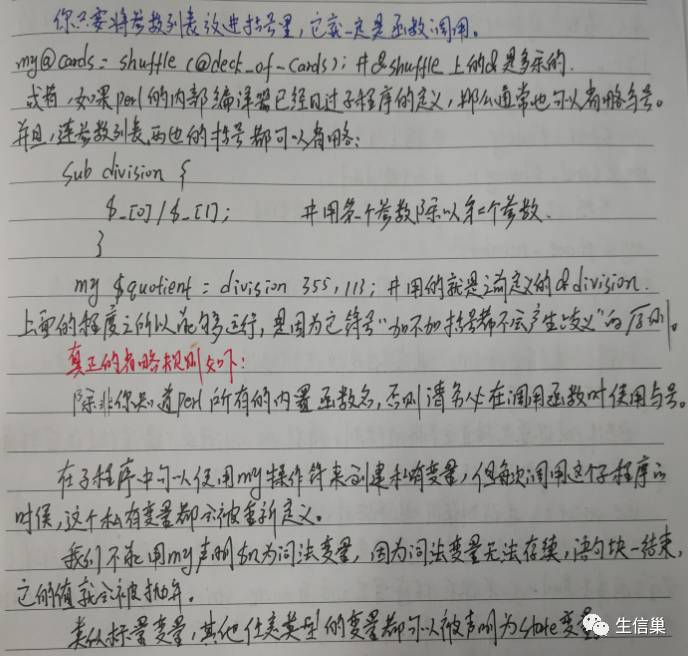 你只要将参数列表放进括号里,它就一定是函数调用。
my@cards = shuffle (@deck_of-cards); #&shuffle 上的&是多余的.
或者,如果perl的内部编译器已经见过子程序的定义,那么通常也可以省略与号。
并且,连参数列表两边的括号都可以省略:
sub division {
$_[0]/$_[1]; #用第一个参数除以第二个参数.
}
my $quotient = division 355,113; #用的就是之前定义的&division.
上面的程度之所以能够运行,是因为它符号"加不加括号都不会产生歧义"的原则。
真正的省略规则如下:
除非你知道perl所有的内置函数名,否则请务必在调用函数时使用与号。
在子程序中可以使用my操作符来创建私有变量,但每次调用这个子程序的
时候,这个私有变量都会被重新定义。
我们不能用my声明$n为词法变量,因为词法变量无法存续,语句块一结束,
它的值就会被抛弃。
类似标量变量,其他任意类型的变量都可以被声明为state变量
生信巢